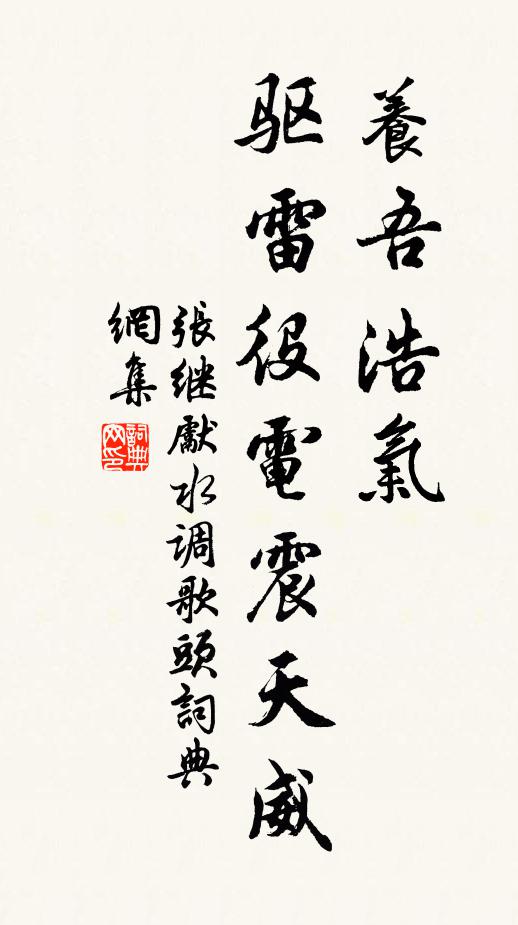 養吾浩氣
驱雷役電震天威
張继獻水调歌頭詞典
網集
詞典
网印